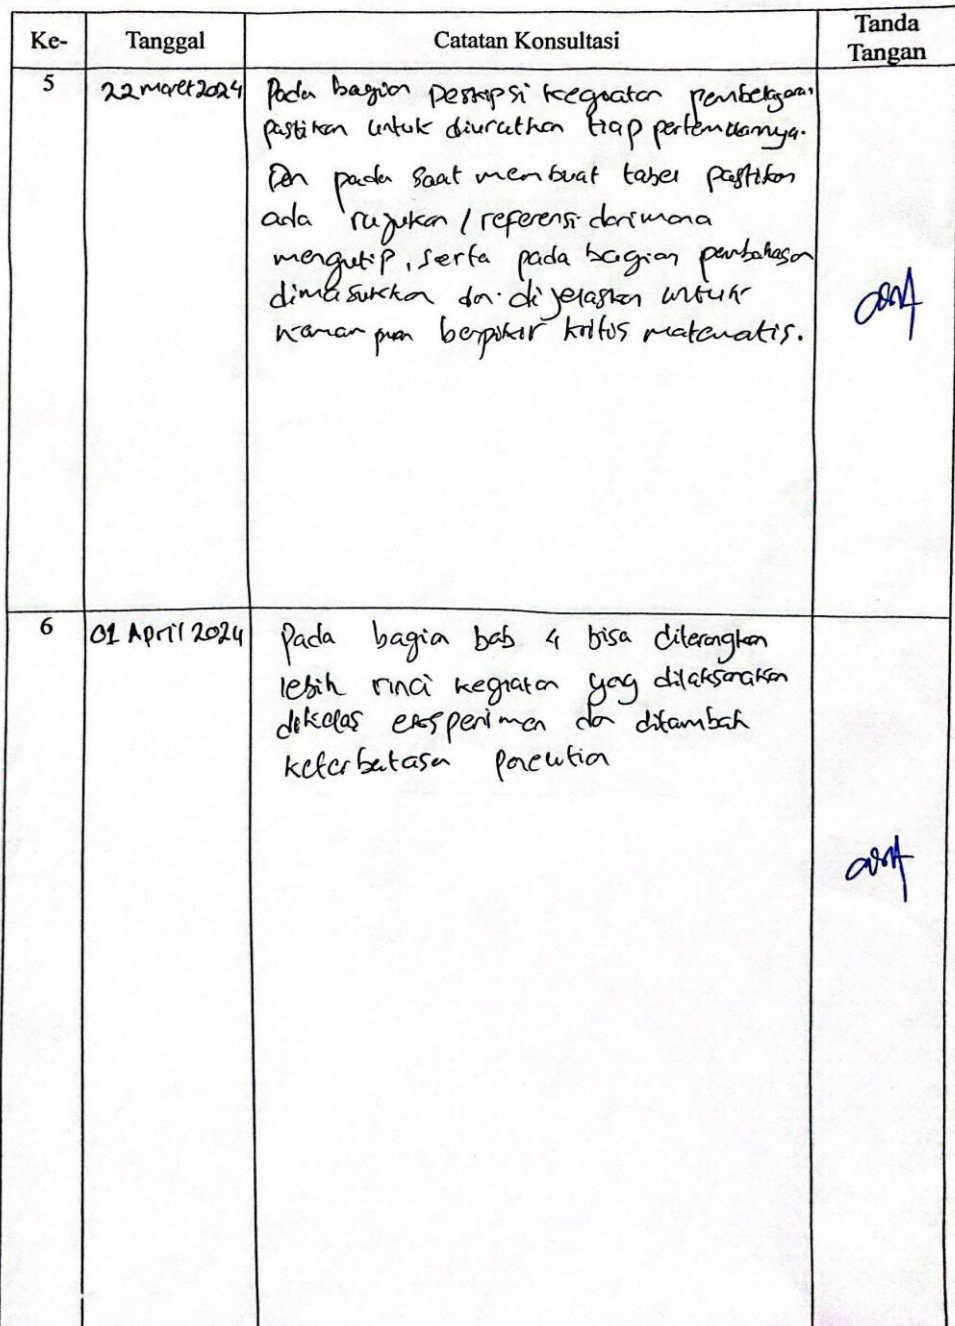 Ke- Tanggal Catatan Konsultasi Tanda Tangan
5 22 maret 2024 Pada bagian Deskripsi kegiatan pembelajaran
pastikan untuk diuraikan tiap pertemuannya.
Dan pada saat membuat tabel pastikan
ada rujukan / referensi darimana
mengutip, serta pada bagian pembahasan
dimasukkan dan dijelaskan untuk
kemampuan berpikir kritis matematis.
6 01 April 2024 Pada bagian bab 4 bisa diterangkan
lebih rinci kegiatan yag dilaksanakan
dikelas eksperimen dan ditambah
keterbatasan penelitian